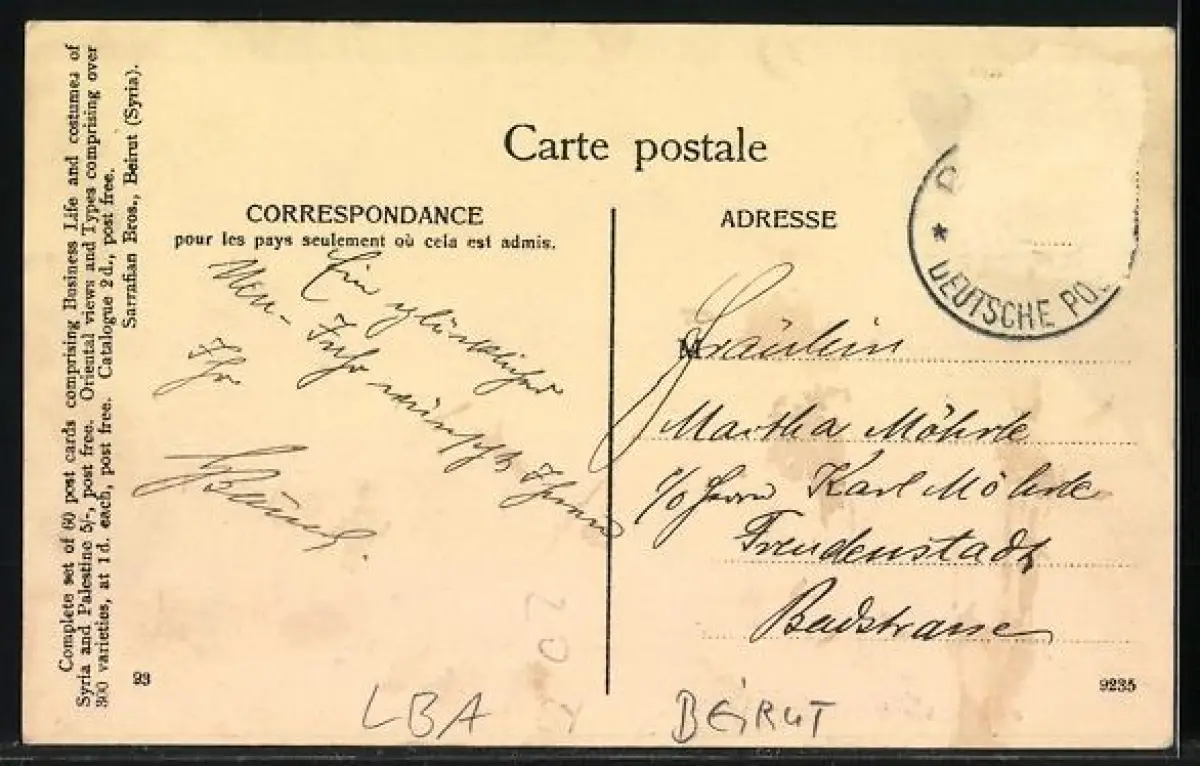 Complete set of 60 post cards comprising Business Life and costumes of
Syria and Palestine 5/-, post free. Oriental views and Types comprising over
300 varieties, at 1 d. each, post free. Catalogue 2 d., post free.
Sarrafian Bros., Beirut (Syria).
Carte postale
CORRESPONDANCE
pour les pays seulement où cela est admis.
Ein glücklicher
Neu-Jahr wünscht Ihnen
Ihr
ADRESSE
* DEUTSCHE PO
Fräulein
Martha Möhrle
c/o Herrn Karl Möhrle
Freudenstadt
Badstrasse
93
9235
20
LBA
BEiRUT